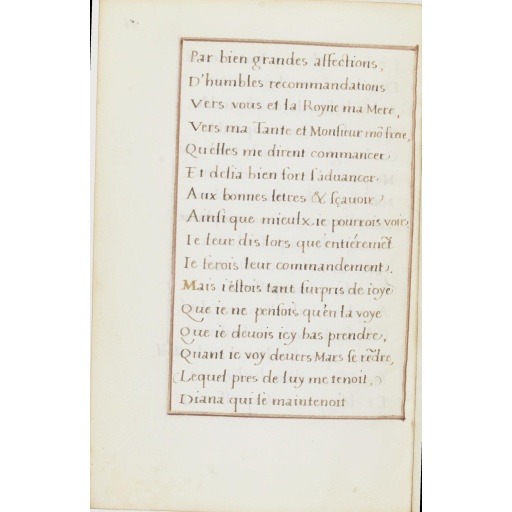 Par bien grandes affections,
D'humbles recommandations
Vers vous et la Royne ma Mere,
Vers ma Tante et Monsieur mõ frere,
Qu'elles me dirent commancer
Et desia bien fort s'aduancer
Aux bonnes letres & sçauoir
Ainsi que mieulx ie pourrois voir
Ie leur dis lors, que entiéremẽt
Ie ferois leur commandement.
Mais i'estois tant surpris de ioye
Que ie ne pensois qu'en la voye
Que ie deuois icy bas prendre,
Quant ie voy deuers Mars se rẽdre,
(Lequel pres de luy me tenoit,)
Diana qui se maintenoit